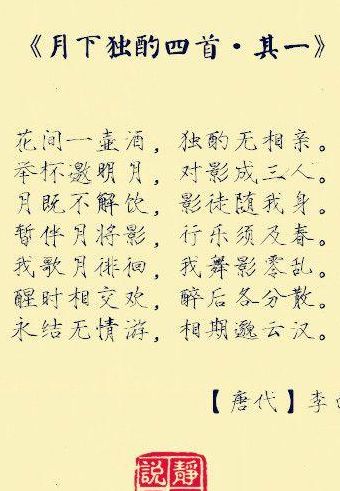 《月下独酌四首·其一》
花间一壶酒，独酌无相亲。
举杯邀明月，对影成三人。
月既不解饮，影徒随我身。
暂伴月将影，行乐须及春。
我歌月徘徊，我舞影零乱。
醒时相交欢，醉后各分散。
永结无情游，相期邈云汉。
【唐代】李
静
说